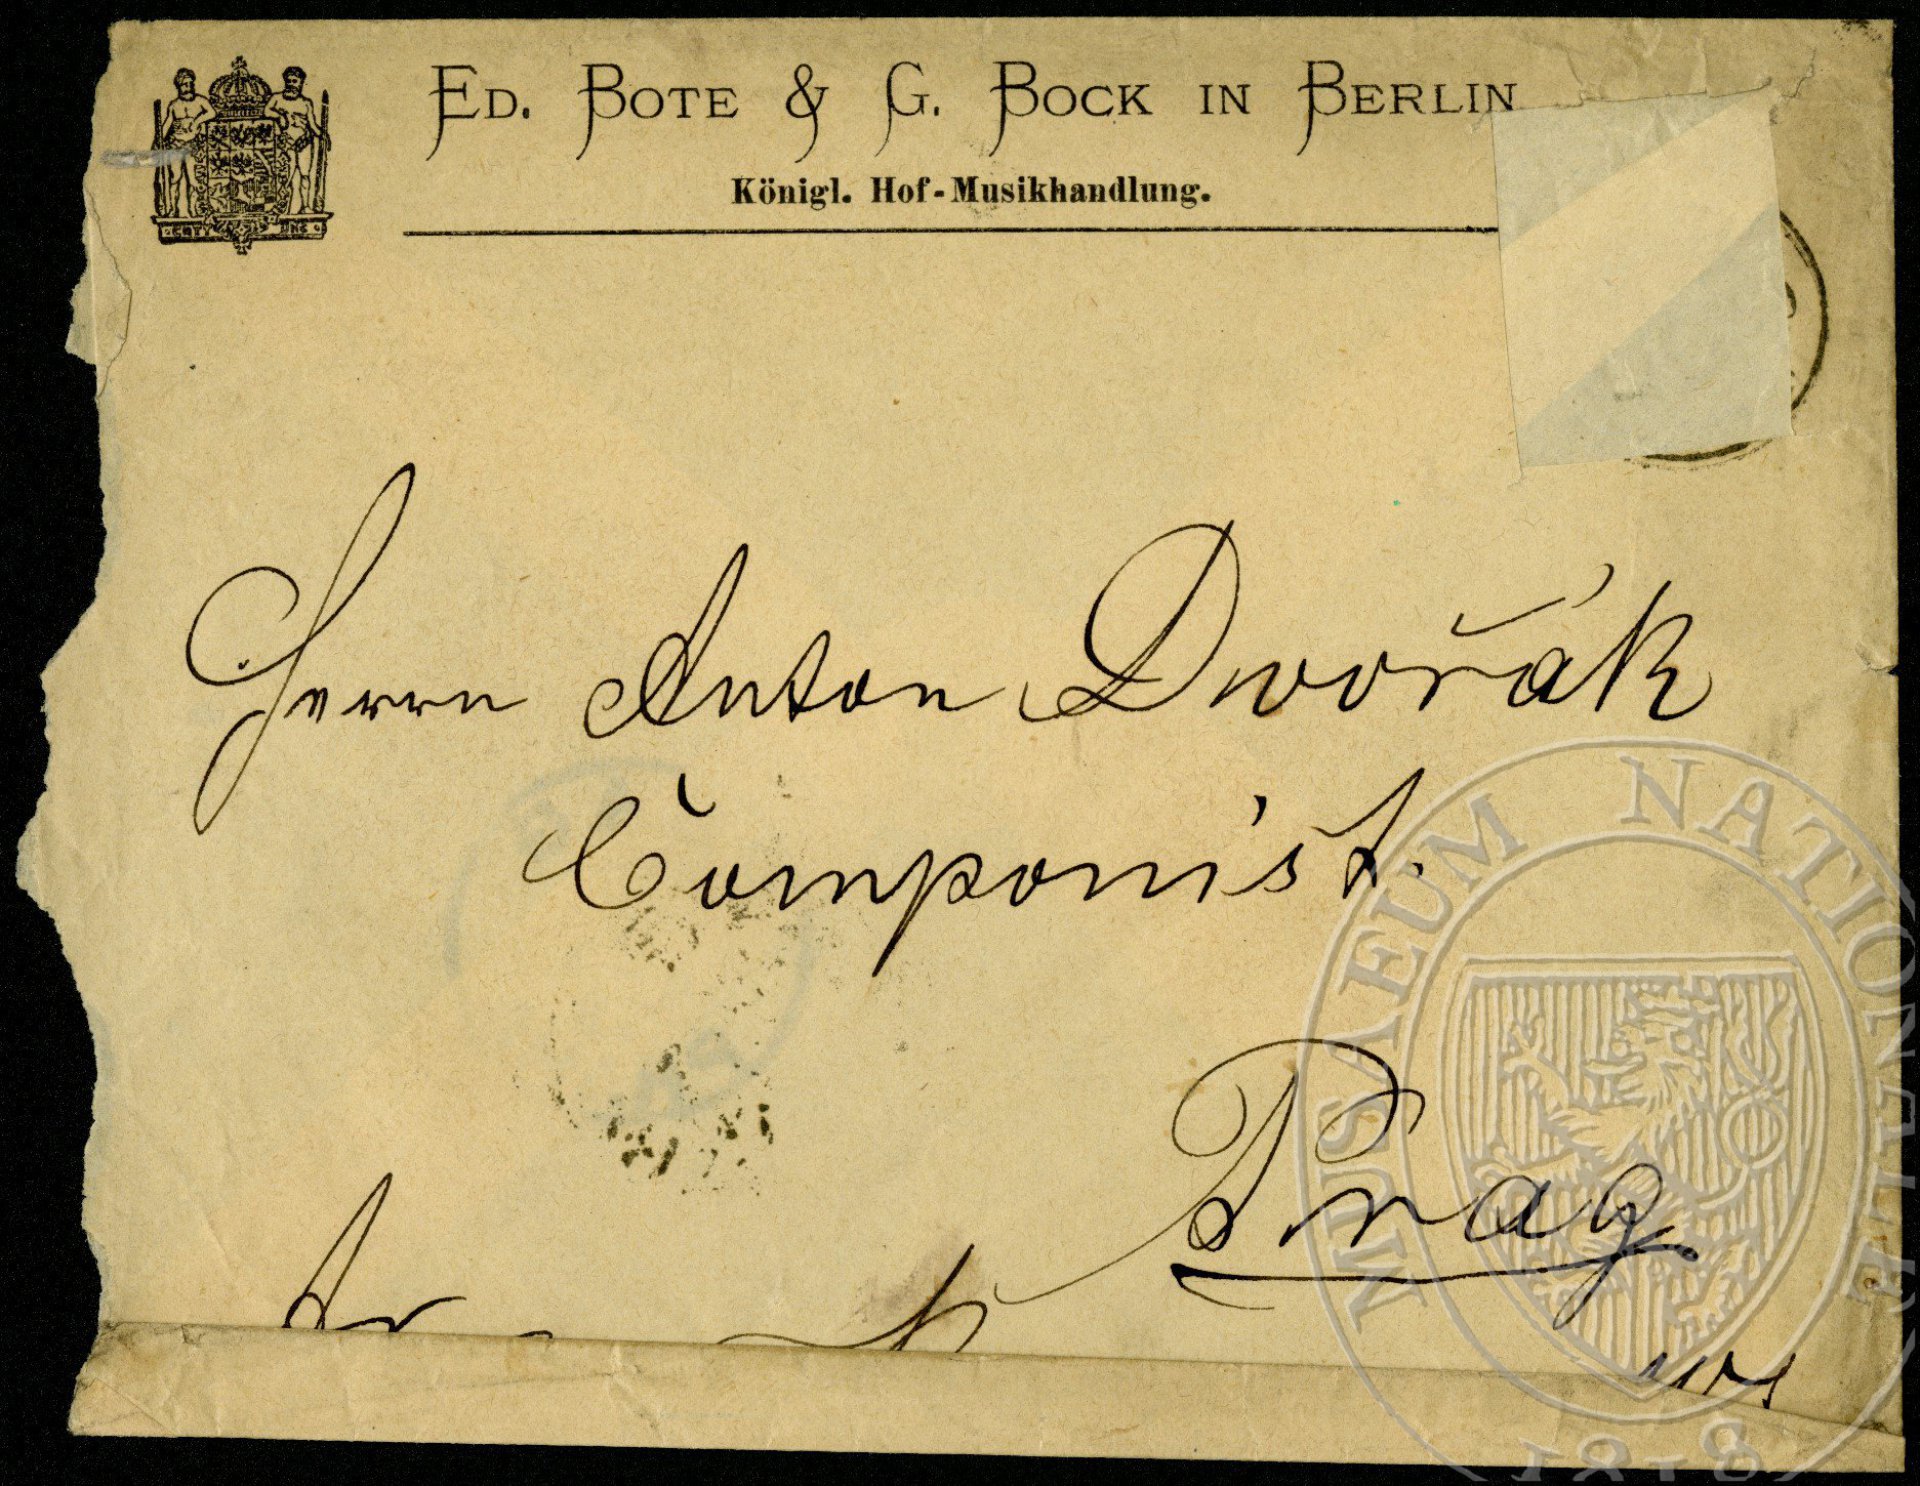 ED. BOTE & G. BOCK IN BERLIN
Königl. Hof-Musikhandlung.
Herrn Anton Dvořák
Componist.
Prag
MUSAEUM NATIONALE
1818